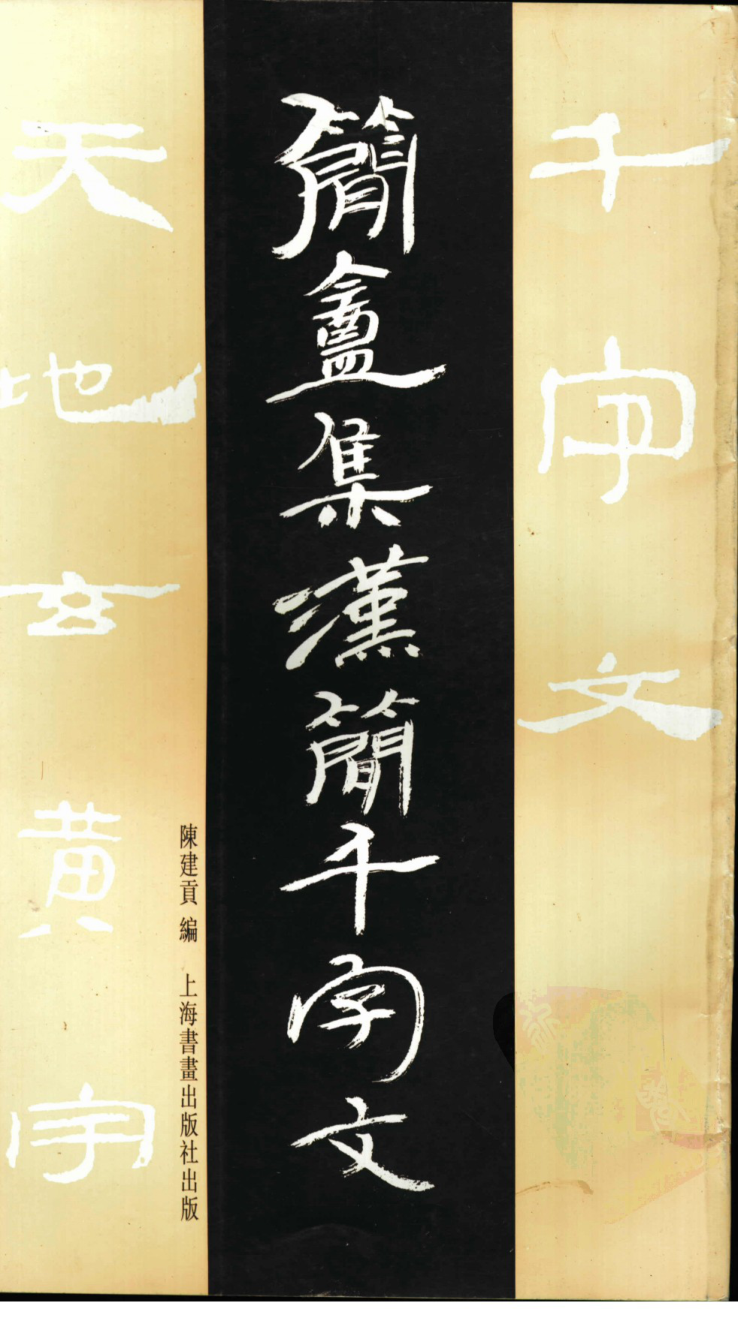 千字文
簡盦集漢簡千字文
陳建貢 編 上海書畫出版社出版
天地玄黃宇